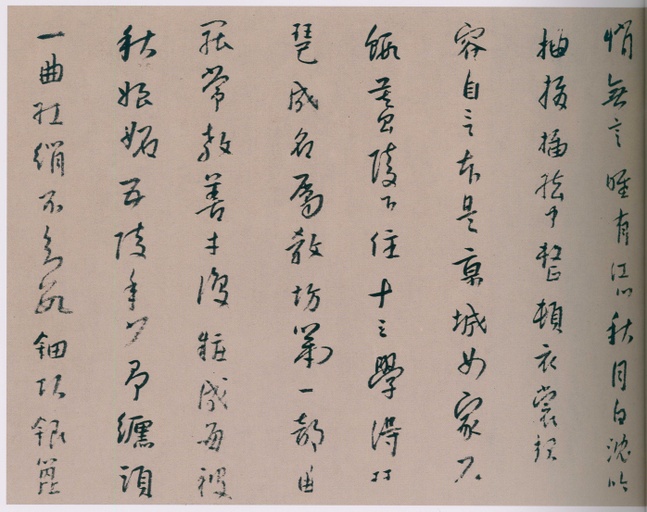 悄無言唯有江心秋月白沈吟
抽撥插絃中整頓衣裳
容自言本是京城女家在
蝦蟇陵下住十三學得琵
琶成名屬教坊第一部曲
罷常教善才服粧成每被
秋娘妬五陵年少爭纏頭
一曲紅綃不知數鈿頭銀篦